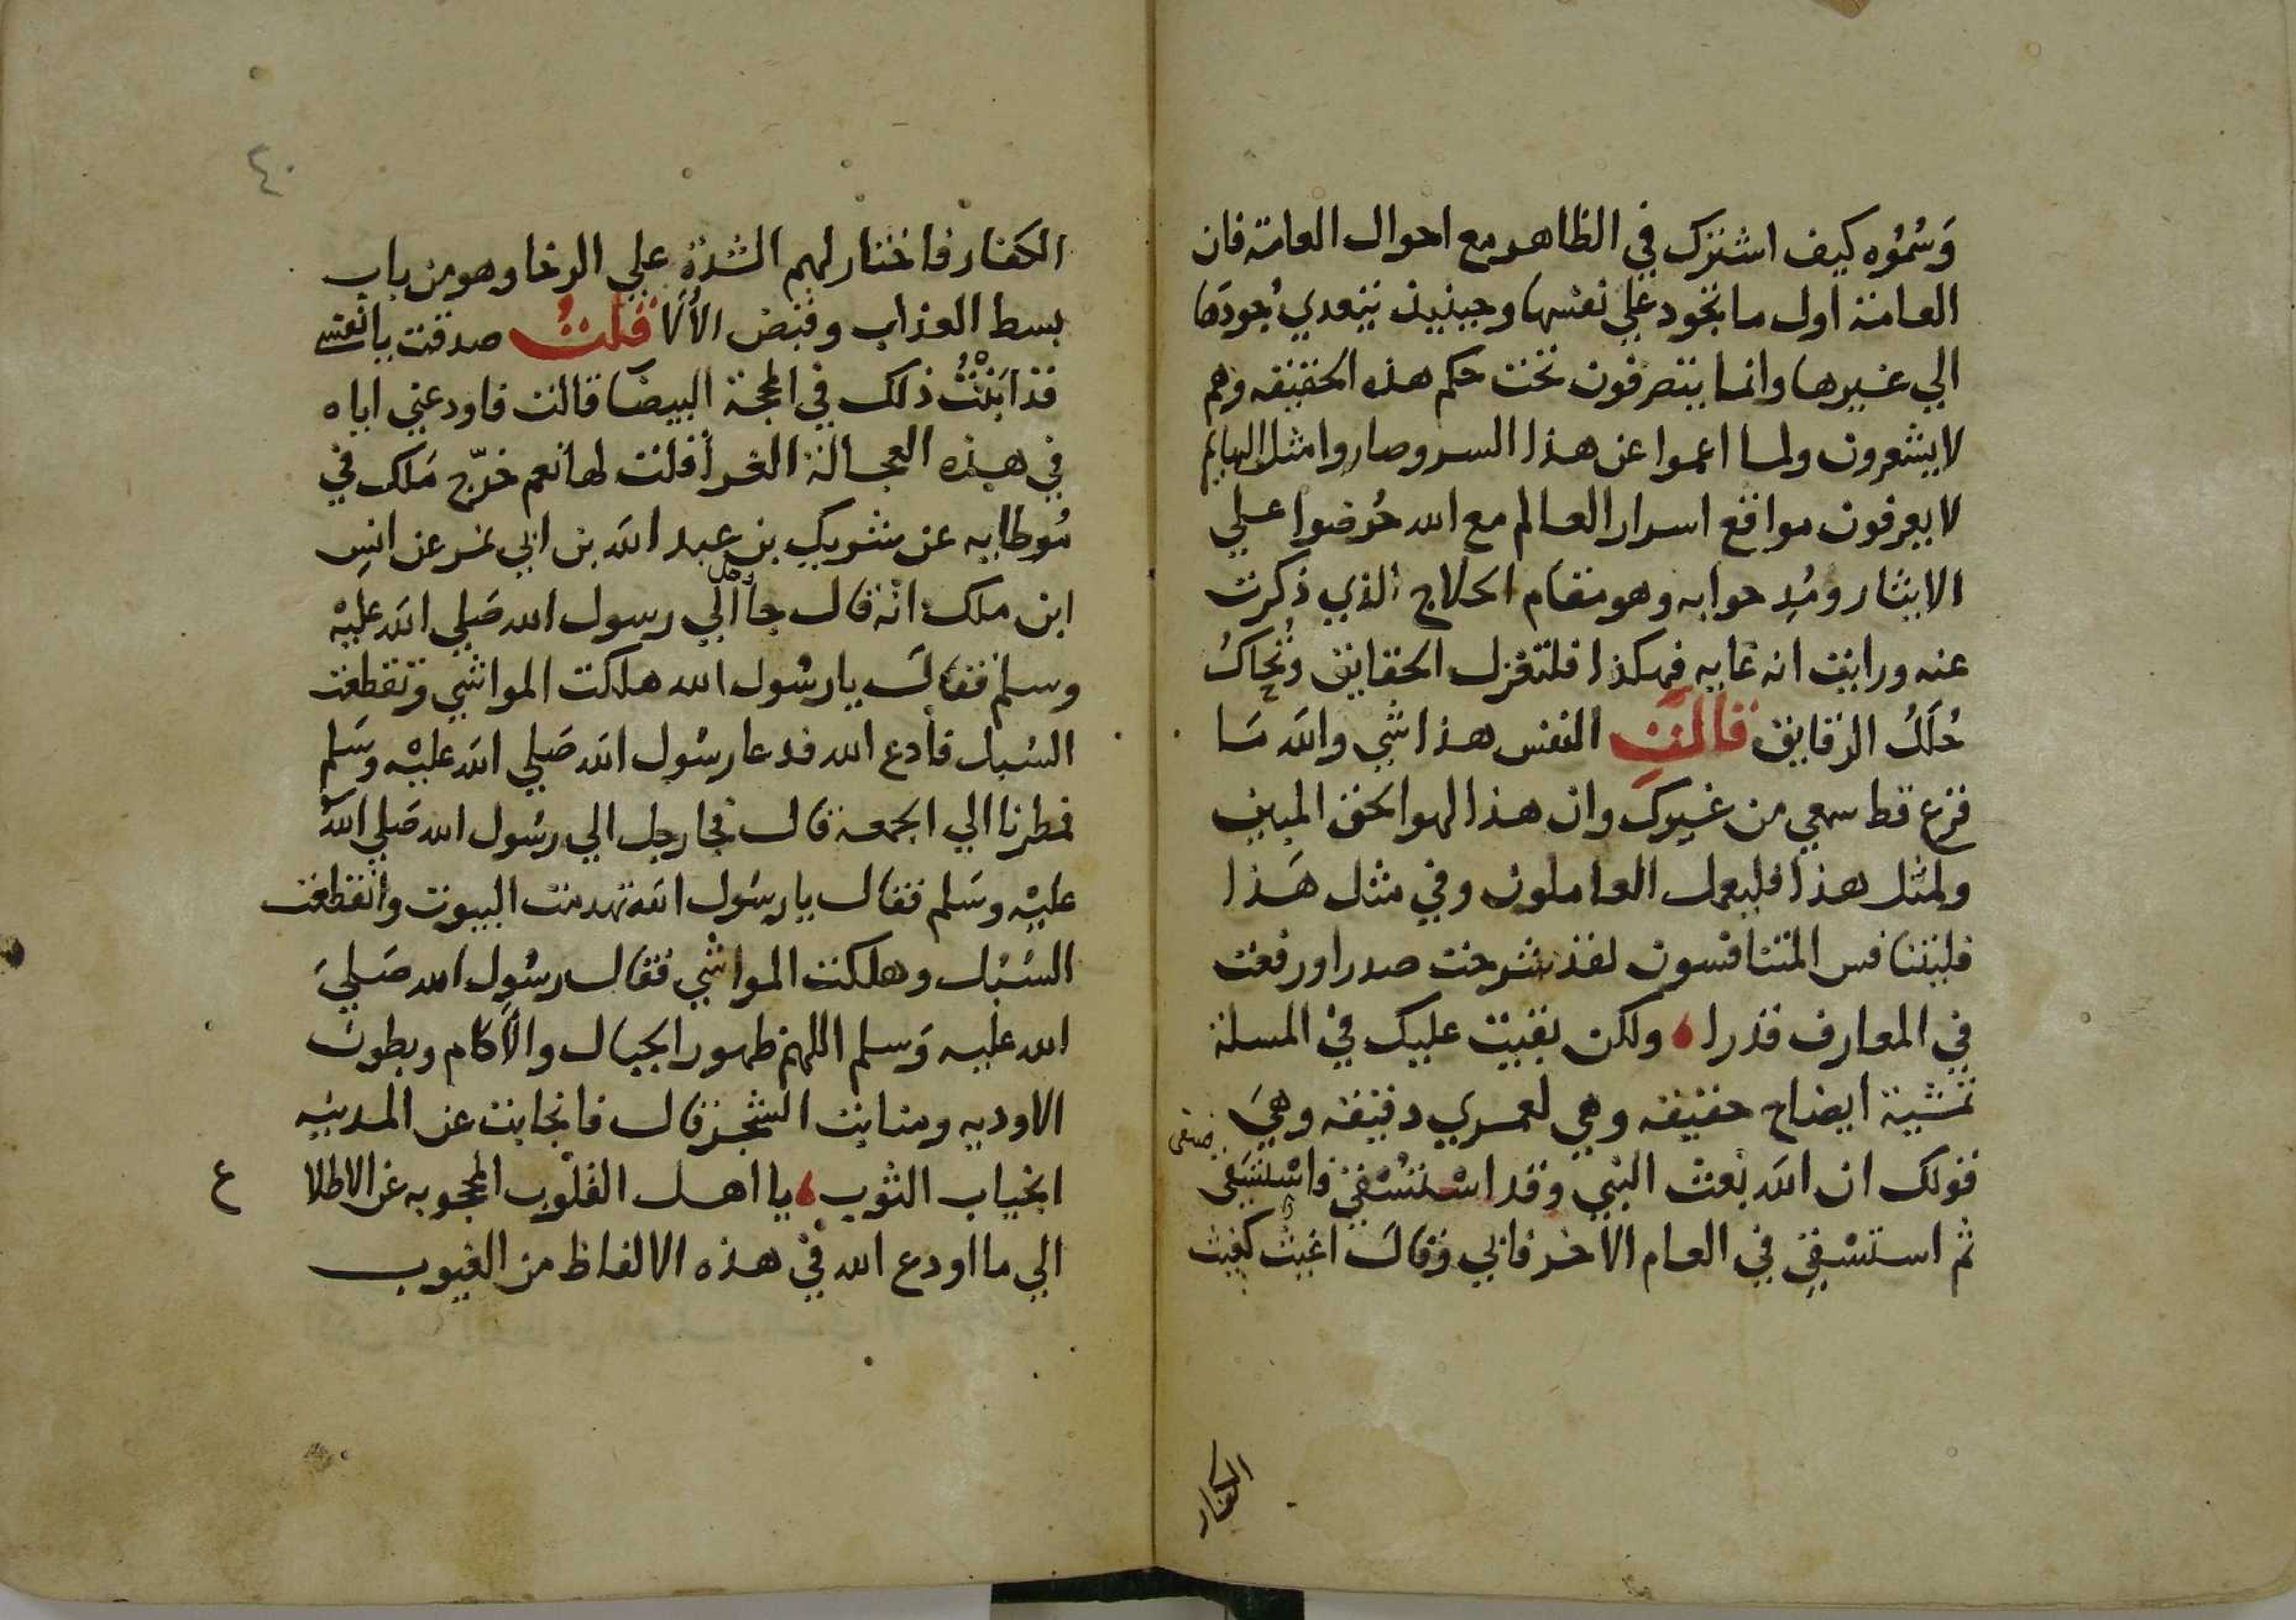 وَسُموّه كيف اشترك في الظاهر مع احوال العامة فان
العامة اول ما تجود علي نفسها وحينيذ يتعدي جودها
الي غيرها وانما يتصرفون تحت حكم هذه الحقيقه وهم
لا يشعرون ولما اعموا عن هذا السر وصاروا مثل البهايم
لا يعرفون مواقع اسرار العالم مع الله حُرضوا علي
الايثار ومُدحوا به وهو مقام الحلاج الذي ذكرت
عنه ورايت انه غايه فهكذا فلتنزل الحقايق وتُحاكُ
حُلَلُ الرقايق قالَتِ النفس هذا شي والله مَا
قرع قط سمعي من غيرك وان هذا لهو الحق المبين
ولمثل هذا فليعمل العاملون وفي مثل هَذا
فليتنافس المتنافسون لقد شرحت صدرا ورفعت
في المعارف قدرا ولكن بقيت عليك في المسلة
تمشية ايضاح حقيقه وهي لعمري دقيقه وهيَ
قولك ان الله بَعث النبي وقد اسْتَسُقِيَ فاسْتسَقى
ثم استسْقِيَ في العام الاخر فابي وقالَ
الكفار
٤٠
الكفار فاختار لهم الشدة علي الرخا وهو من باب
بسط العذاب وقبض الألآ قلتُ صدقت يا نفسِ
قد ابَنْتُ ذلك في المحجة البيضا قالت فاودعني اياه
في هذه العجالة الغرا فقلت لها نعم خرّج مَلك في
مُوطايه عن شريك بن عبد الله بن ابي نمر عن انسِ
ابن ملك انه قال جا رجل الي رسول الله صَلي الله عليْه
وسلم فقالَ يا رسُول الله هلكت المواشي وتقطعت
السُبل فأدع الله فدعا رسُول الله صَلي الله عليْه وسَلم
فمطرنا الي الجمعة قال فجا رجل الي رسُول الله صَلي الله
عليْه وسَلم فقال يا رسَول الله تهدمت البيوت وانقطعت
السُبُل وهلكت المواشي فقال رسُول الله صَلي
الله عليه وَسلم اللهم ظهور الجبال والآكام وبطون
الاوديه ومنابت الشجر قال فانجابت عن المدينه
انجياب الثوب يا اهل القلوب المحجوبه عن الاطلا
ع
الي ما اودع الله في هذه الالفاظ من الغيوب